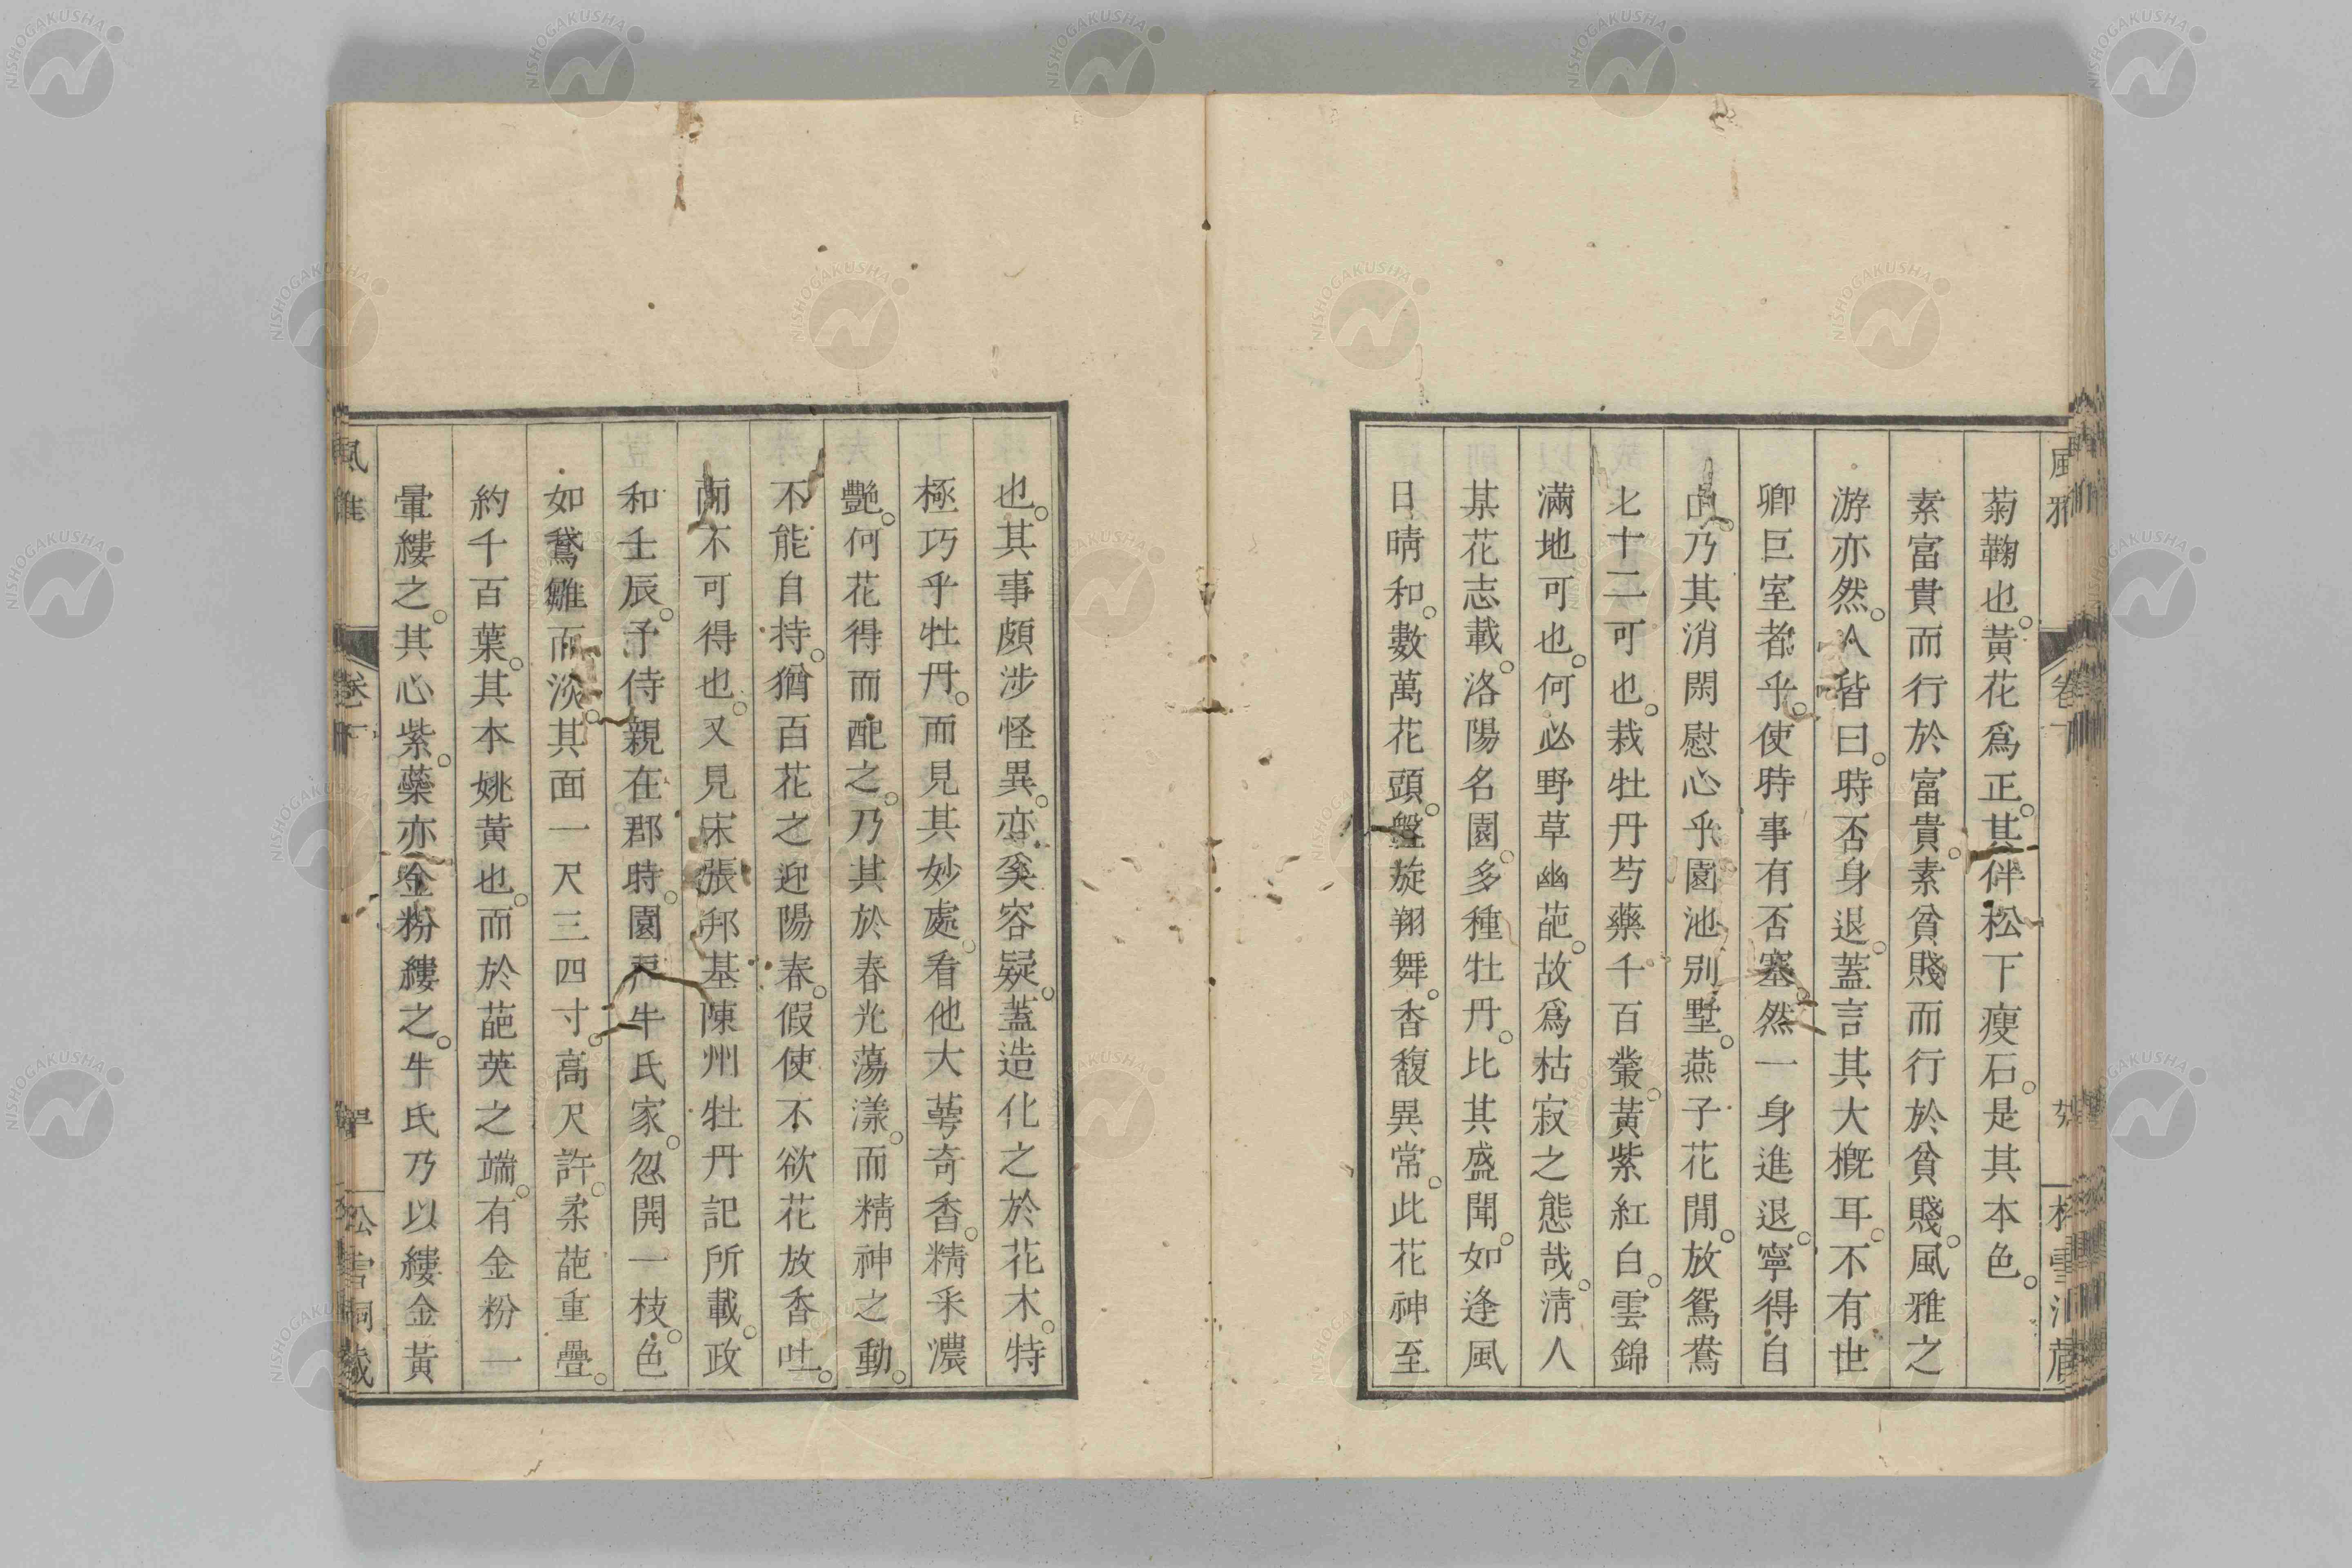 菊鞠也。黃花爲正。其伴松下瘦石。是其本色。
素富貴而行於富貴。素貧賤而行於貧賤。風雅之
游亦然。人皆曰。時否身退。蓋言其大槪耳。不有世
卿巨室者乎。使時事有否塞。然一身進退。寧得自
由。乃其消閑慰心乎。園池別墅。燕子花開。放鴛鴦
七十二可也。栽牡丹芍藥千百叢。黃紫紅白。雲錦
滿地可也。何必野草幽葩。故爲枯寂之態哉。淸人
某花志載。洛陽名園。多種牡丹。比其盛聞。如逢風
日晴和。數萬花頭。盤旋翔舞。香馥異常。此花神至
也。其事頗涉怪異。亦奚容疑。蓋造化之於花木。特
極巧乎牡丹。而見其妙處。看他大萼奇香。精采濃
艷。何花得而配之。乃其於春光蕩漾。而精神之動。
不能自持。猶百花之迎陽春。假使不欲花放香吐。
而不可得也。又見宋張邦基陳州牡丹記所載。政
和壬辰。予侍親在郡時。園戶牛氏家。忽開一枝。色
如鵞雛而淡。其面一尺三四寸。高尺許。柔葩重疊。
約千百葉。其本姚黃也。而於葩英之端。有金粉一
暈縷之。其心紫蘂。亦金粉縷之。牛氏乃以縷金黃
風雅
卷下
松雪洞藏
NISHOGAKUSHA